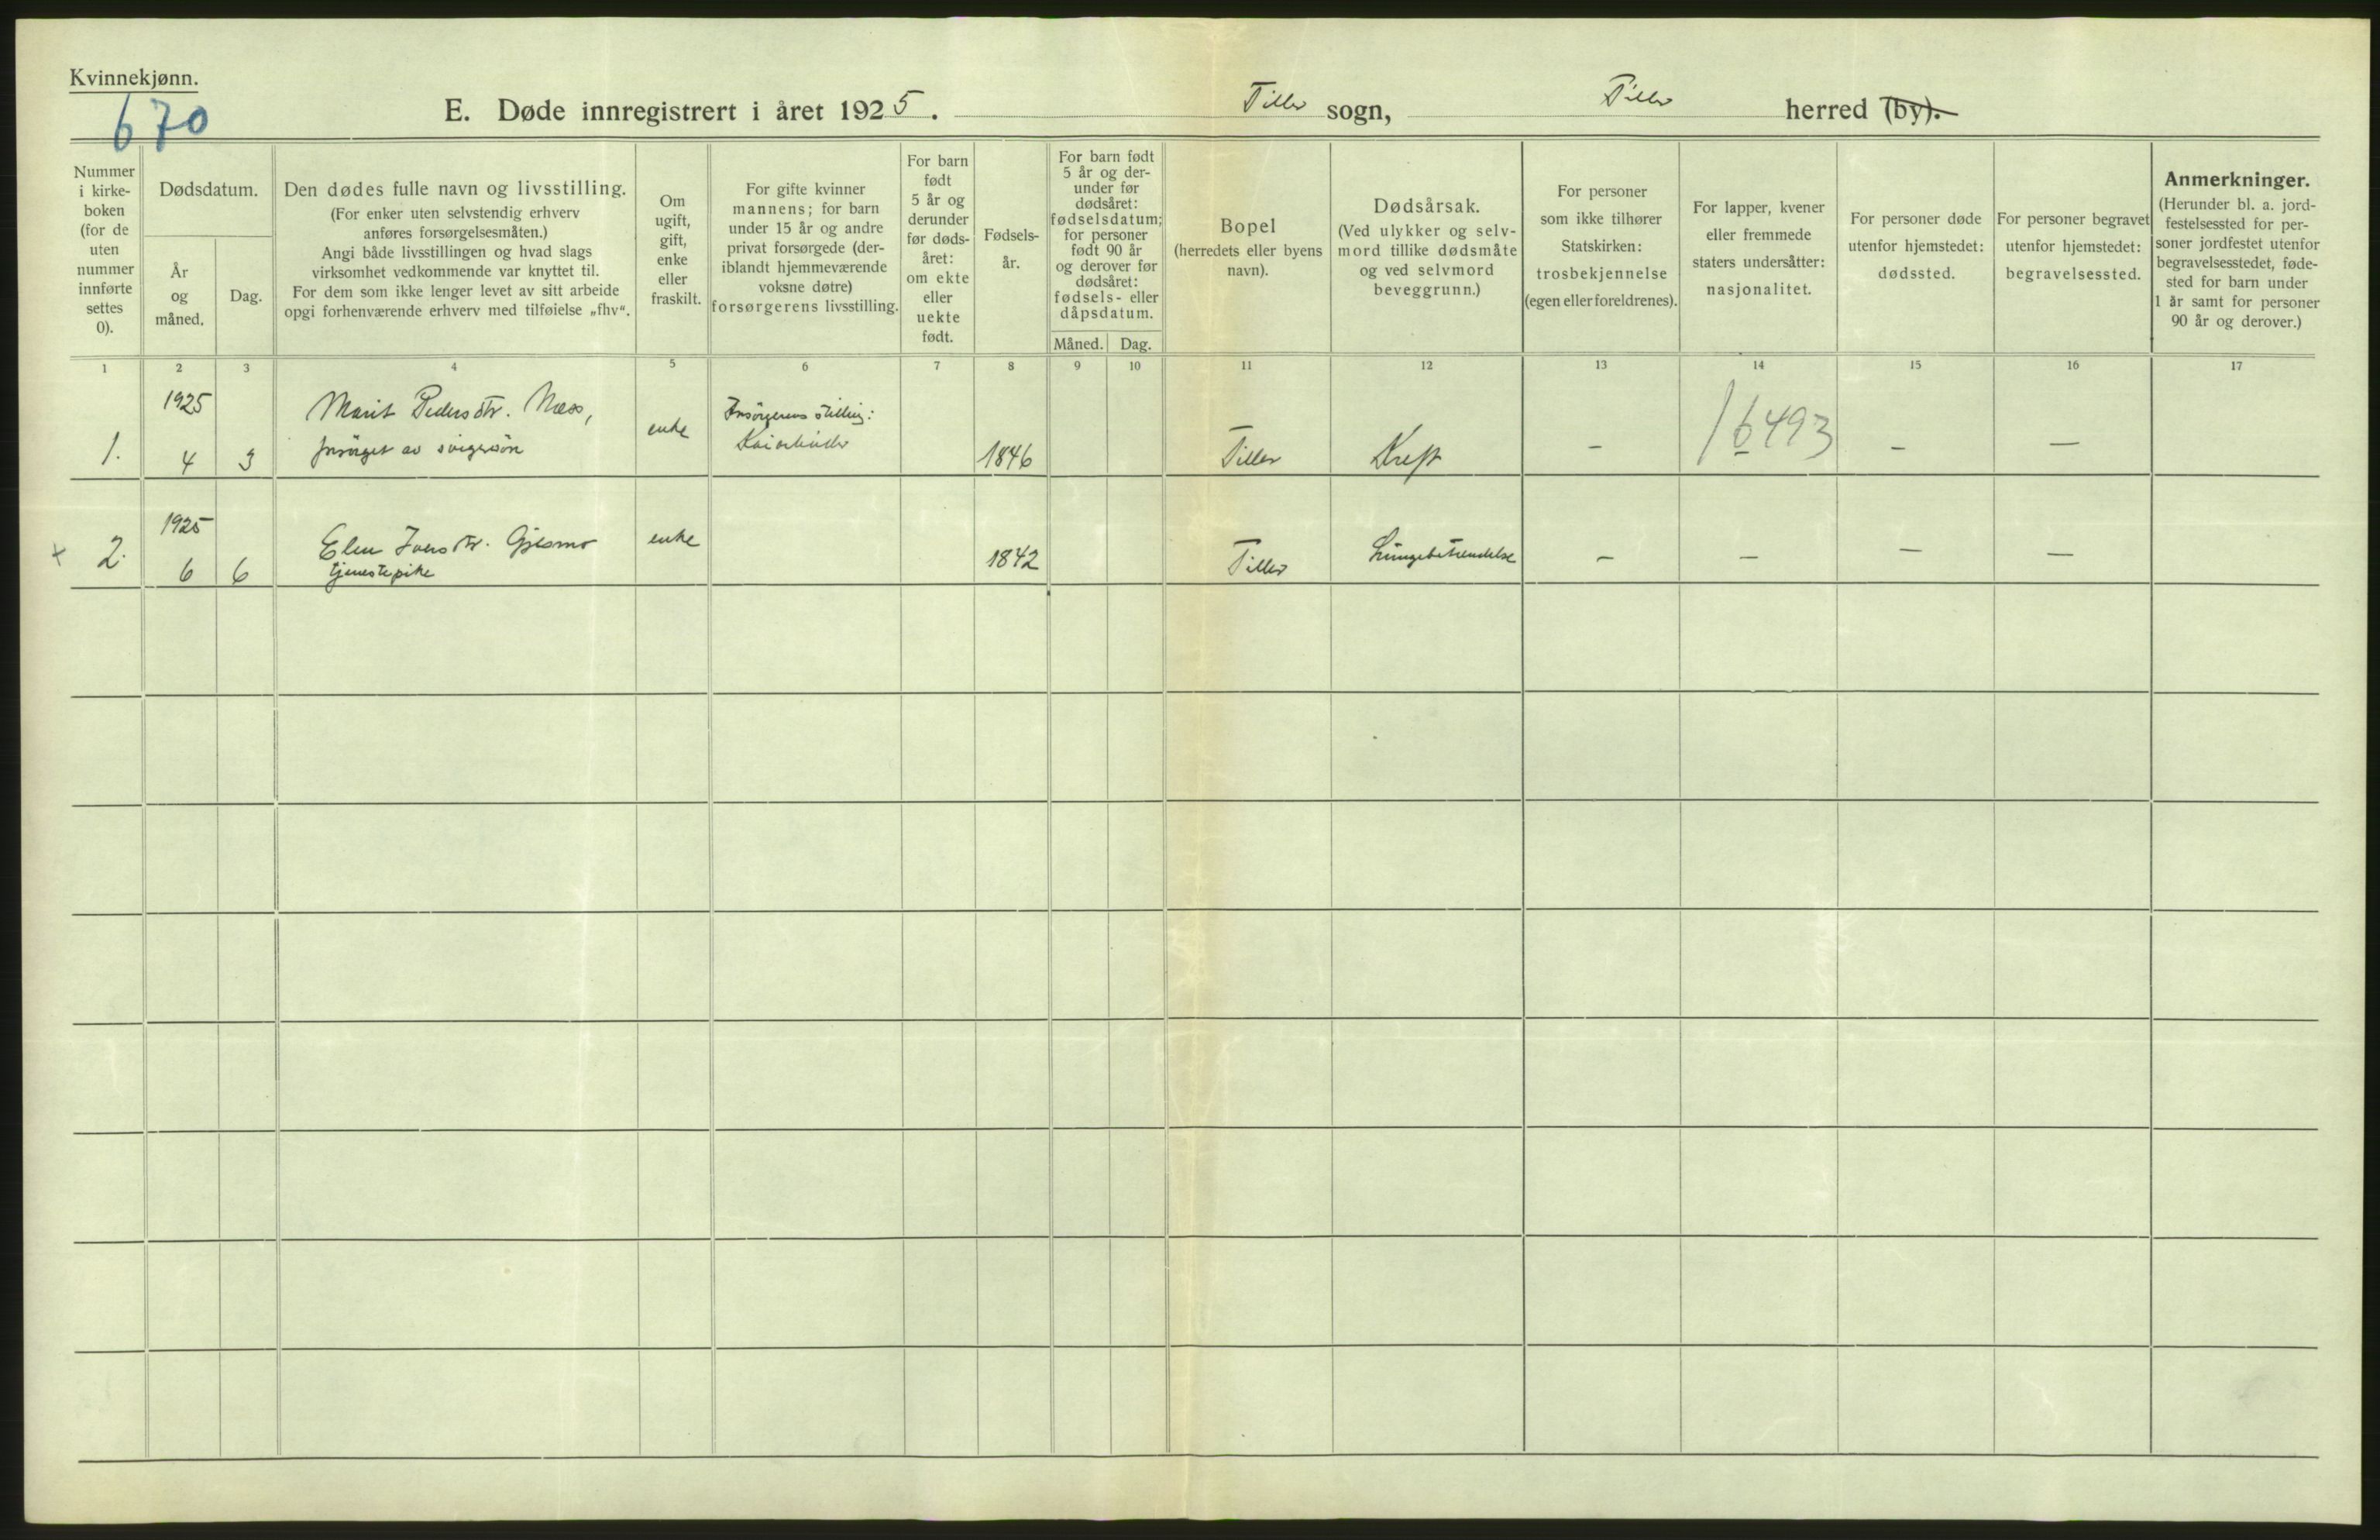 Kvinnekjønn.
670
E. Døde innregistrert i året 1925. Tiller sogn, Tiller herred (by).
Nummer
i kirke-
boken
(for de
uten
nummer
innførte
settes
0).
Dødsdatum.
År
og
måned.
Dag.
Den dødes fulle navn og livsstilling.
(For enker uten selvstendig erhverv
anføres forsørgelsesmåten.)
Angi både livsstillingen og hvad slags
virksomhet vedkommende var knyttet til.
For dem som ikke lenger levet av sitt arbeide
opgi forhenværende erhverv med tilføielse „fhv“.
Om
ugift,
gift,
enke
eller
fraskilt.
For gifte kvinner
mannens; for barn
under 15 år og andre
privat forsørgede (der-
iblandt hjemmeværende
voksne døtre)
forsørgerens livsstilling.
For barn
født
5 år og
derunder
før døds-
året:
om ekte
eller
uekte
født.
Fødsels-
år.
For barn født
5 år og der-
under før
dødsåret:
fødselsdatum;
for personer
født 90 år
og derover før
dødsåret:
fødsels- eller
dåpsdatum.
Måned. Dag.
Bopel
(herredets eller byens
navn).
Dødsårsak.
(Ved ulykker og selv-
mord tillike dødsmåte
og ved selvmord
beveggrunn.)
For personer
som ikke tilhører
Statskirken:
trosbekjennelse
(egen eller foreldrenes).
For lapper, kvener
eller fremmede
staters undersåtter:
nasjonalitet.
For personer døde
utenfor hjemstedet:
dødssted.
For personer begravet
utenfor hjemstedet:
begravelsessted.
Anmerkninger.
(Herunder bl. a. jord-
festelsessted for per-
soner jordfestet utenfor
begravelsesstedet, føde-
sted for barn under
1 år samt for personer
90 år og derover.)
1 2 3 4 5 6 7 8 9 10 11 12 13 14 15 16 17
1925 Marit Pedersdtr. Næss, Forsørgerens stilling:
1. 4 3 forsørget av svigersøn enke 1846 Tiller Kreft — 16493 — —
1925
+ 2. 6 6 Elen Iversdtr. enke 1842 Tiller Lungebetændelse — — — —
tjenestepike